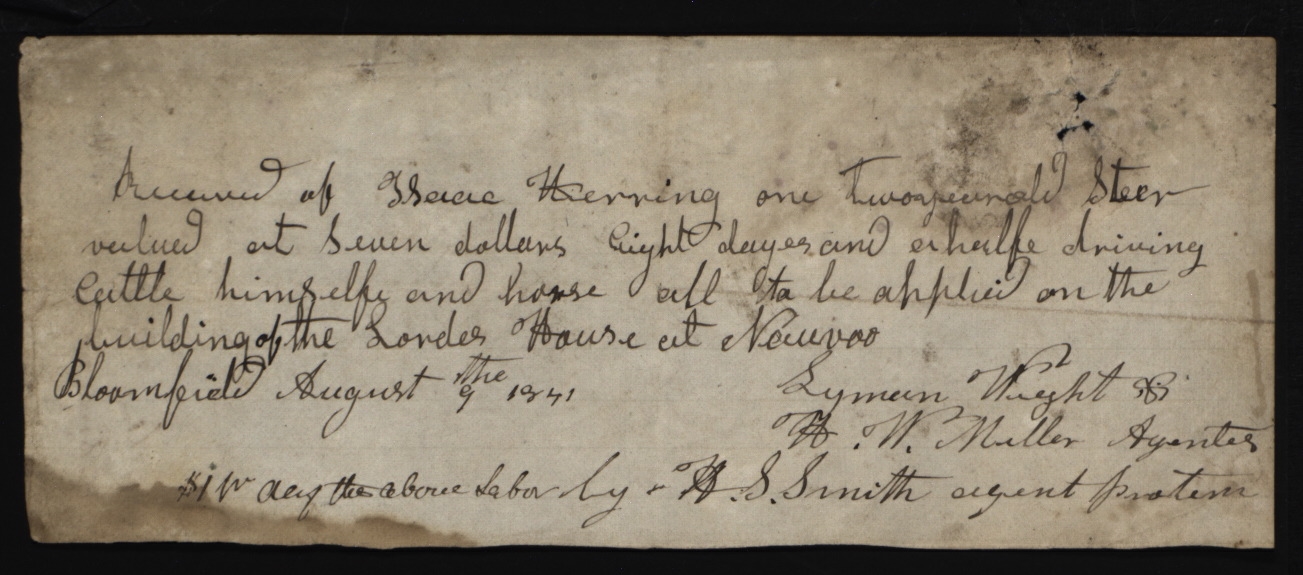 Received of Isaac Herring one twoyearold Steer
valued at Seven dollars Eight dayes and ahalfe driving
Cattle himselfe and horse all to be applied on the
building of the Lordes House at Nauvoo
Bloomfield August the 9 1841 Lyman Wight &
H. W. Miller Agentes
$1 pr day the above Labor by H. S. Smith agent protem